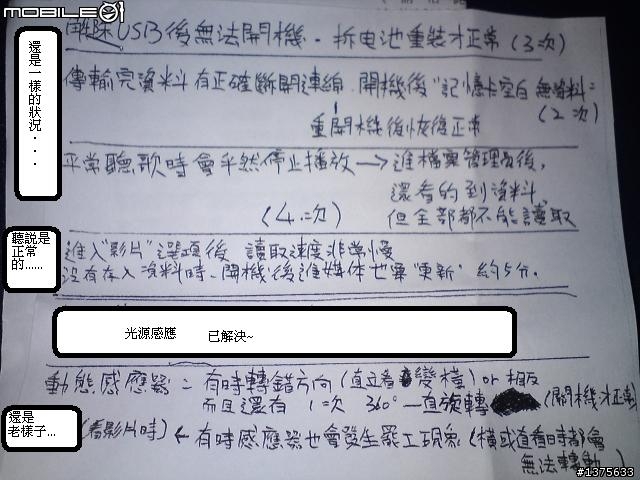 MOBILE01
解除USB後無法開機．拆电池重裝才正常（3次）
還是一樣的狀況．．．
傳輸完資料有正確斷開連線．開機後"記憶卡空白無資料"
（2次）
重開機後恢復正常
平常聽歌時會半然停止播放→進檔案管理員後，
還看的到資料
（4次） 但全部都不能讀取
聽説是正常的......
進入"影片"選項後 讀取速度非常慢
沒有存入資料時．開機後進媒体也要"更新"約5分．
光源感應 已解決~
動態感應器：有時轉錯方向（直立看變橫）or 相反
而且還有1次 360° 一直旋轉 （開機才正常
還是老樣子...
（看影片時）←有時感應器也會發生罷工現象（橫或直看時都會
無法轉動）
#1375633